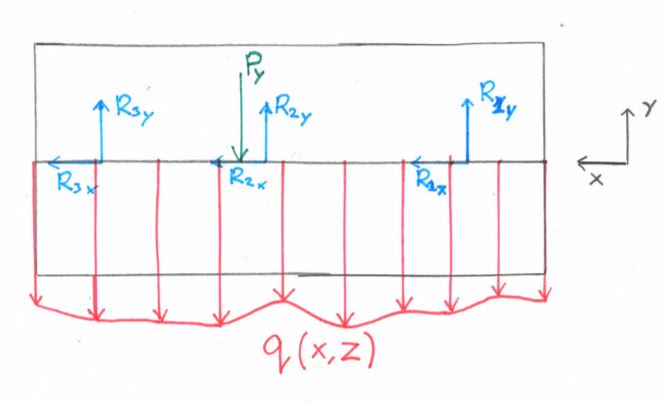 Py
R3y
R2y
R1y
Y
R3x
R2x
R1x
x
q(x,z)